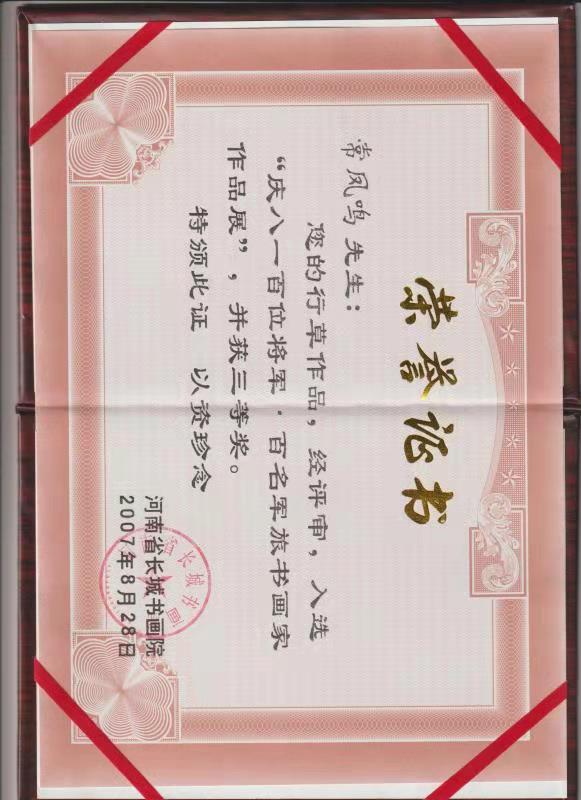 荣誉证书
常凤鸣 先生：
您的行草作品，经评审，入选
“庆八一百位将军·百名军旅书画家
作品展”，并获三等奖。
特颁此证 以资珍念
河南省长城书画院
2007年8月28日